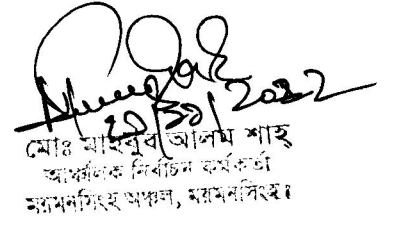 ২০/১০/২০২২
মোঃ মাহবুব আলম শাহ্
আঞ্চলিক নির্বাচন কর্মকর্তা
ময়মনসিংহ অঞ্চল, ময়মনসিংহ।